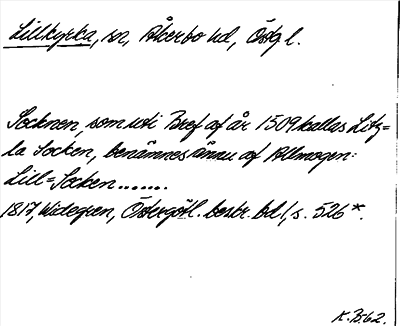 Lillkyrka, sn, Åkerbo hd, Östg l.
Socknen, som uti Bref af år 1509 kallas Litz=
la Socken, benämnes ännu af Allmogen:
Lill=Socken.......
1817, Widegren, Östergötl. beskr. bd 1, s. 526*.
K. B:62.